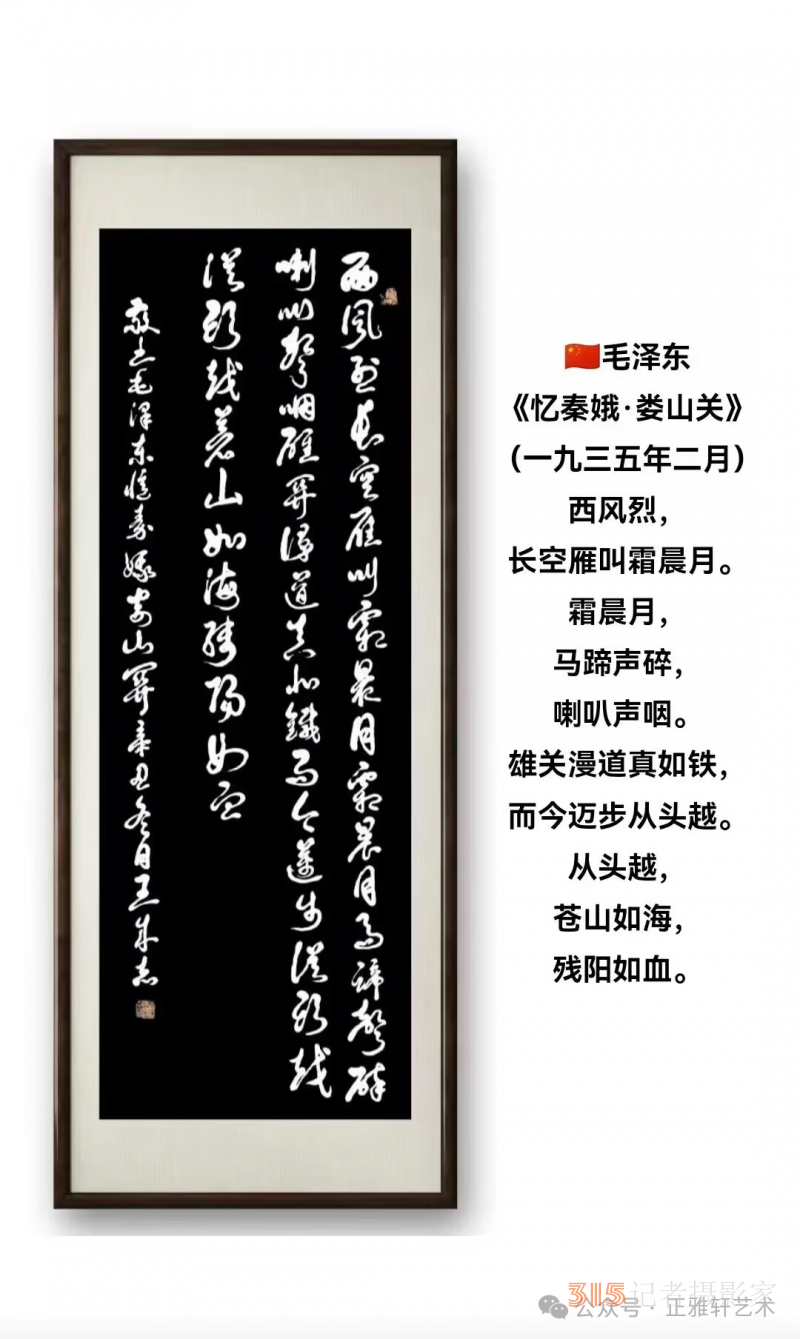 西風烈長空雁叫霜晨月霜晨月馬蹄聲碎
喇叭聲咽雄關漫道真如鐵而今邁步從頭越
從頭越蒼山如海殘陽如血
敬书毛澤東憶秦娥婁山關辛丑冬月王成志
🇨🇳毛泽东
《忆秦娥·娄山关》
（一九三五年二月）
西风烈，
长空雁叫霜晨月。
霜晨月，
马蹄声碎，
喇叭声咽。
雄关漫道真如铁，
而今迈步从头越。
从头越，
苍山如海，
残阳如血。
315记者摄影家
公众号·正雅轩艺术